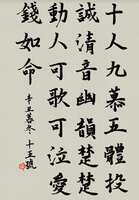 十人九慕五體投
誠清音幽韻楚楚
動人可歌可泣愛
錢如命
辛丑暮冬 十五號